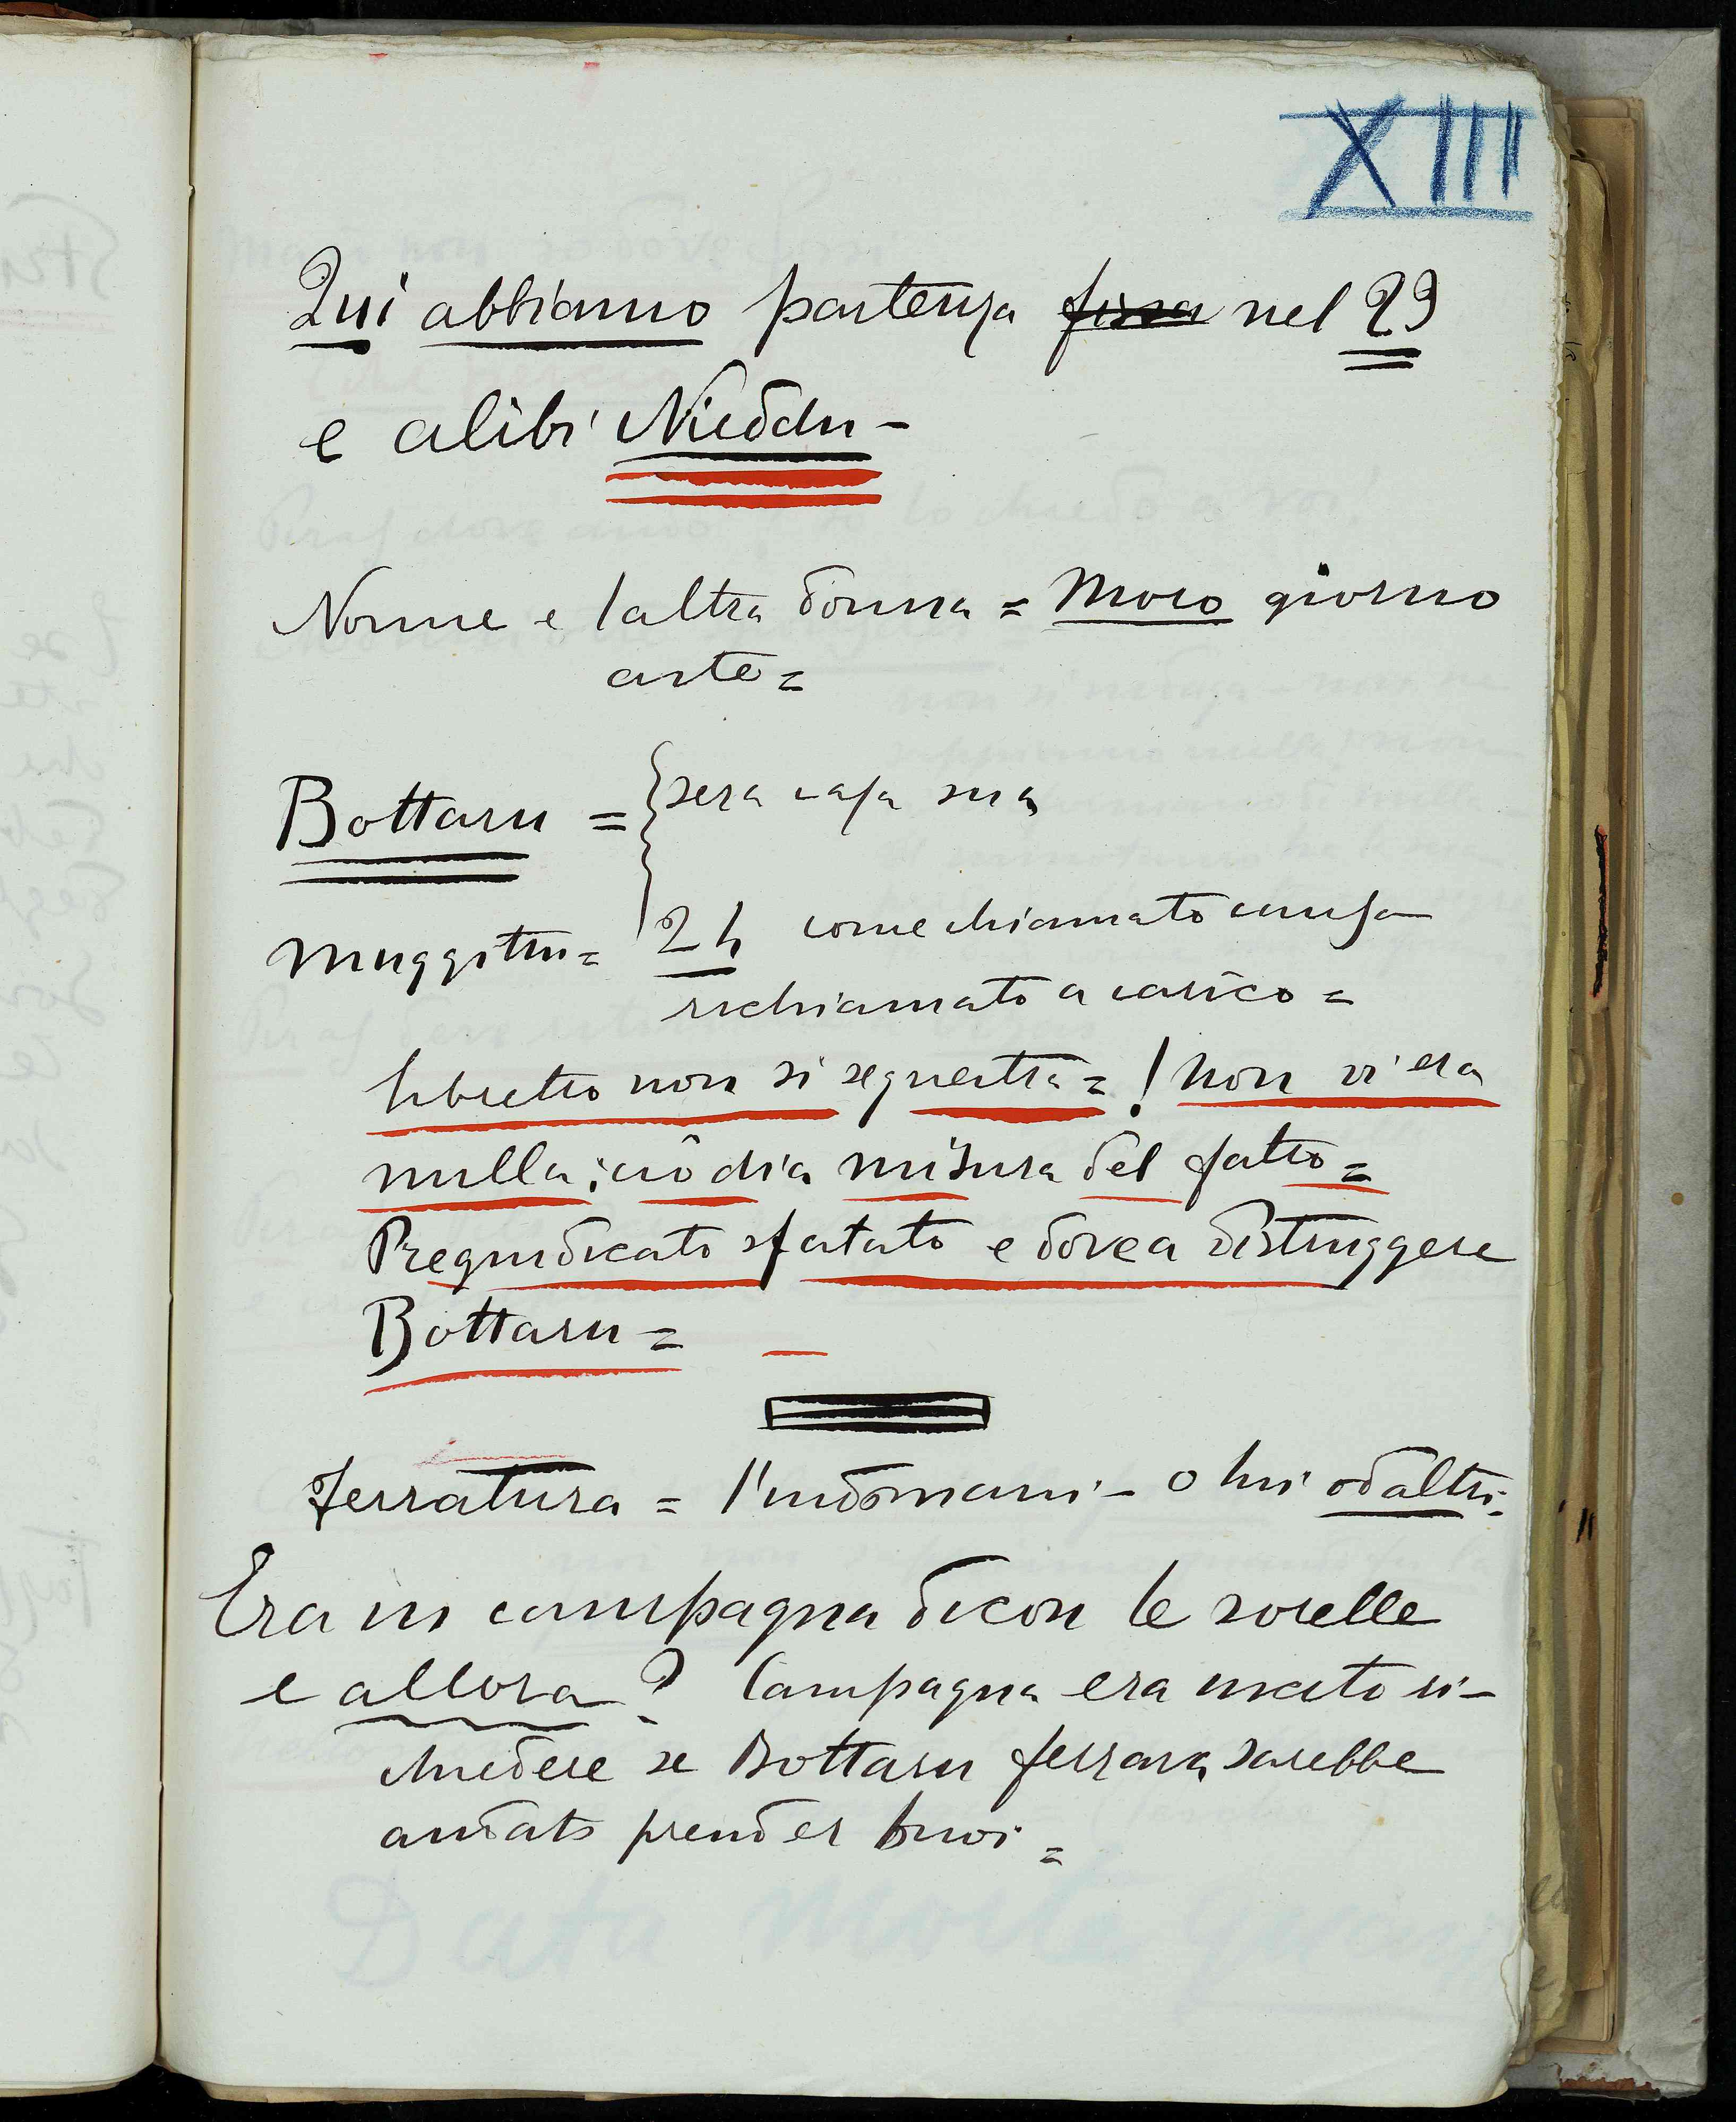 XIII
Qui abbiamo partenza fissa nel 29
e alibi Nieddu -
Nonne e l'altra donna = Moro giorno
arte =
Bottaru = { sera casa sua
Muggittu = 24 come chiamato causa
richiamato a carico =
libretto non si sequestra = ! non vi era
nulla; ciò dia misura del fatto =
Pregiudicato sfatato e dovea distruggere
Bottaru =
Ferratura = l'indomani - o lui od altri -
Era in campagna dicon le sorelle
e allora? Campagna era uscito ri-
chiedere se Bottaru ferrava sarebbe
andato prender buoi =